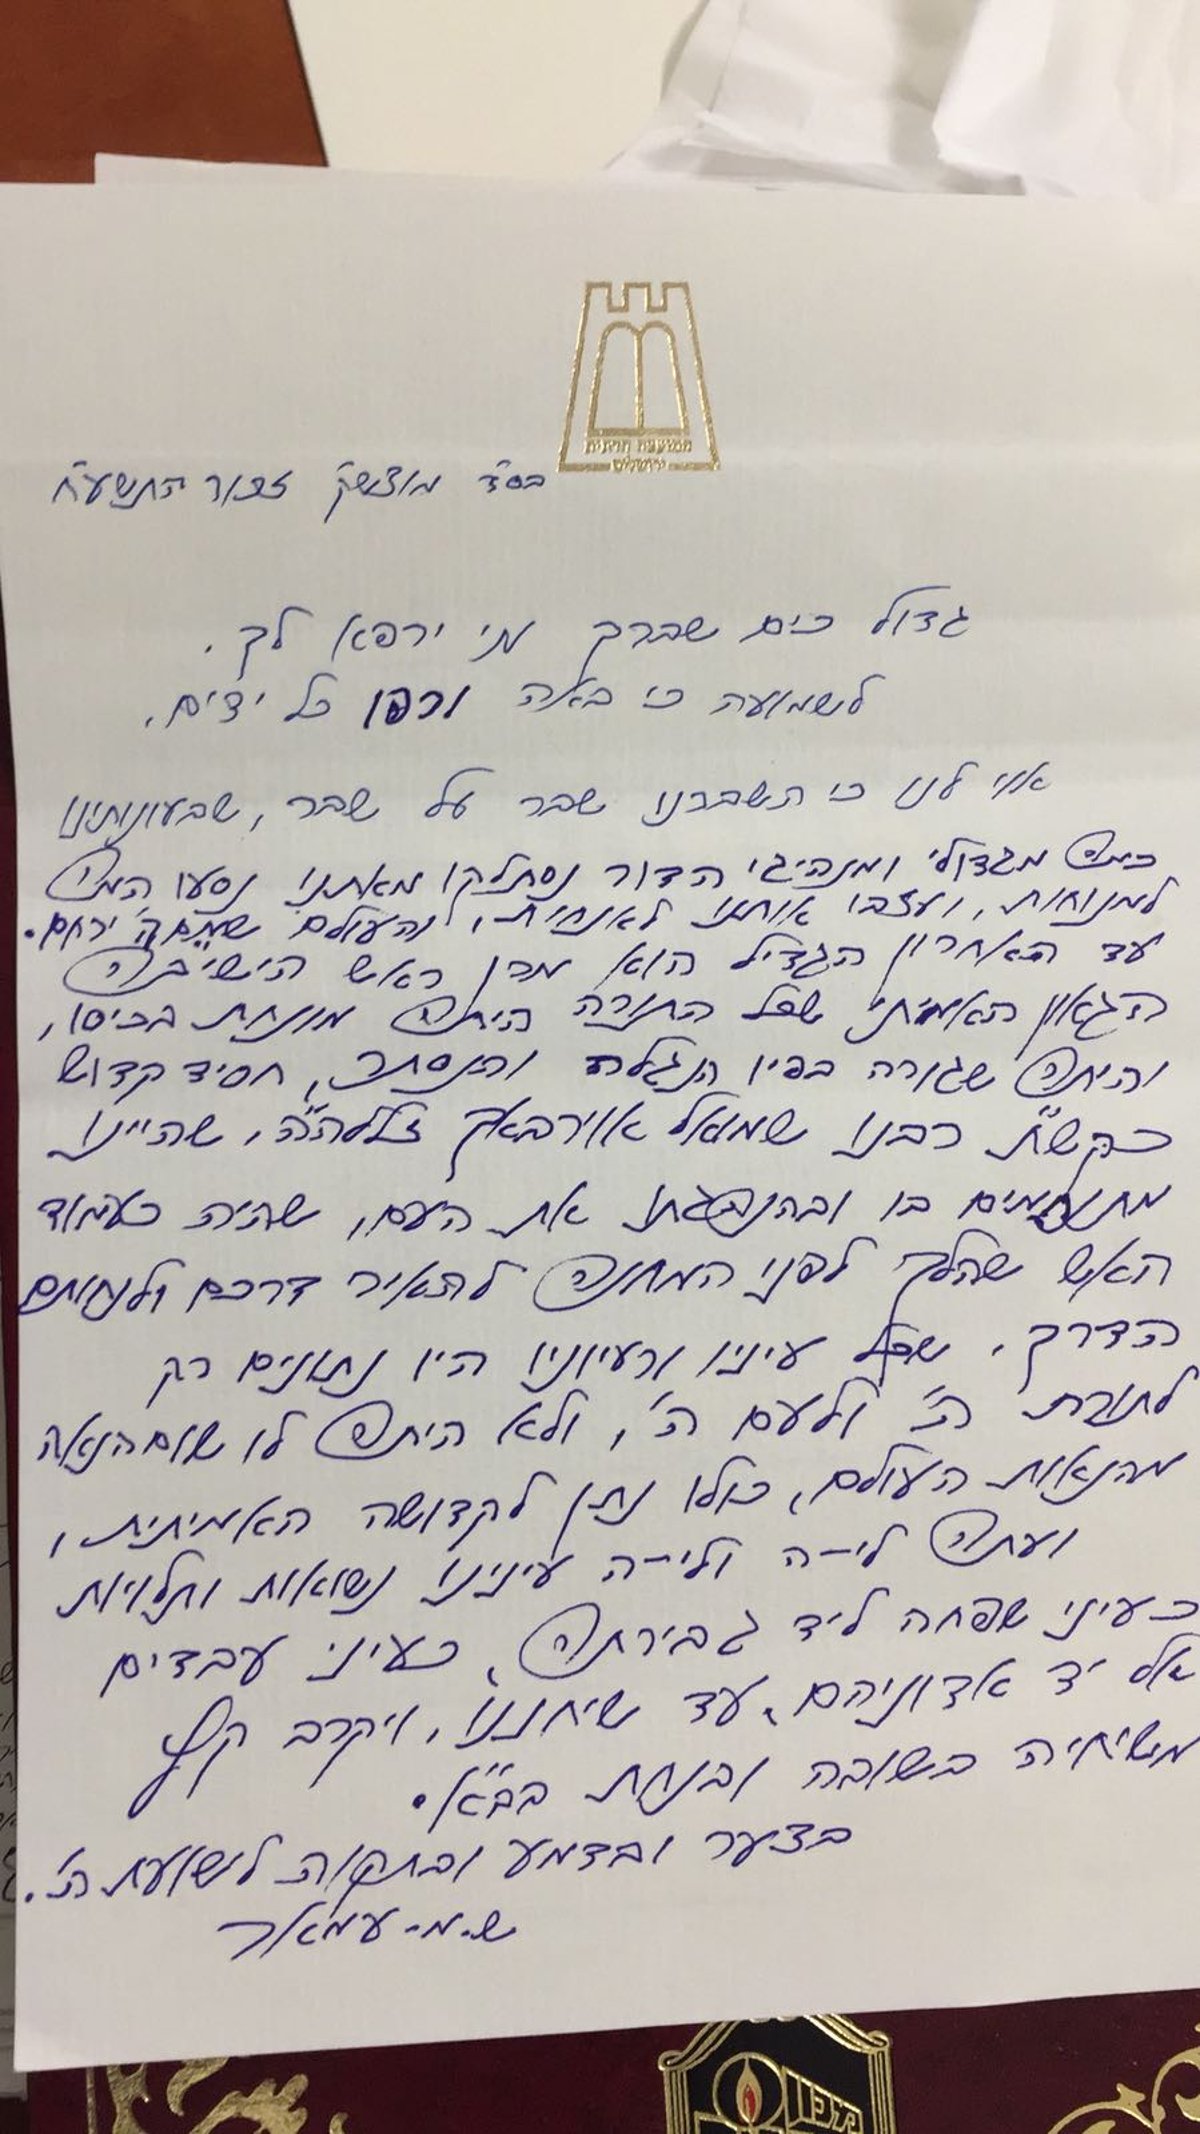 מועצה דתית
ירושלים
בס"ד מוצש"ק זכור התשע"ח
גדול כים שברך מי ירפא לך.
לשמועה כי באה ורפו כל ידים.
אוי לנו כי השברנו שבר על שבר, שבעונותינו
כמה מגדולי ומנהיגי הדור נסתלקו מאתנו נסעו המה
למנוחות, ועזבו אותנו לאנחות, והעולם שמם ה' ירחם.
עד האחרון הגדיל הוא מרן ראש הישיבה
הגאון האמיתי שכל התורה היתה מונחת בכיסו,
והיתה שגורה בפיו הנגלה והנסתר, חסיד קדוש
כקש"ת רבנו שמואל אוירבאך זללה"ה, שהיינו
מתנחמים בו ובהנהגתו את העם, שהיה כעמוד
האש שהלך לפני המחנה להאיר דרכם ולנחותם
הדרך. שכל עיניו ורעיוניו היו נתונים רק
לתורת ה' ולעם ה', ולא היתה לו שום הנאה
מהנאות העולם, כולו נתן לקדושה האמיתית,
ועתה לי-ה ולי-ה עינינו נשואות ותלויות
כעיני שפחה ליד גבירתה, כעיני עבדים
אל יד אדוניהם, עד שיחננו, ויקרב קץ
משיחיה בשובה ובנחת בב"א.
בצער ובדמע ובתקוה לישועת ה'.
ש.מ. עמאר